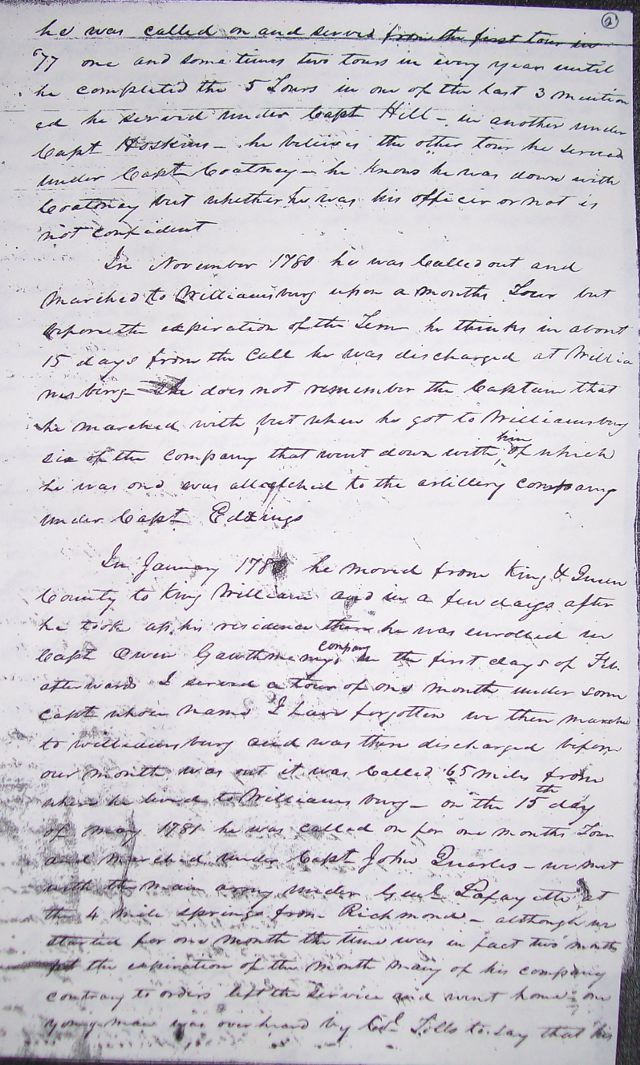 2
he was called on and served from the first tour in
'77 one and some times two tours in every year until
he completed the 5 Tours in one of the last 3 mention
ed he served under Capt Hill – in another under
Capt Hoskins – he believes the other tour he served
under Capt Coatney – he knows he was down with
Coatney but whether he was his officer or not is
not confident
In November 1780 he was Called out and
marched to Williamsburg upon a months Tour but
before the experation of the Term he thinks in about
15 days from the Call he was discharged at Willia
msburg – he does not remember the Captain that
he marched with but when he got to Williamsburg
six of the company that went down with him of which
he was one was attatched to the artillery company
under Capt
In January 178 he moved from King & Queen
County to King William and in a few days after
he took up his residence there he was enrolled in
Capt Owen company in the first days of Feb.
afterward I served a tour of one month under some
capt whose name I have forgotten we then marche
to Williamsburg and was then discharged before
our month was out it was Called 65 miles from
where he lived to Williamsburg – on the 15th day
of may 1781 he was called on for one months Tour
and marched under Capt John Quarles – we met
with the main army under Genl Lafayette at
the 4 mile springs from Richmond – although we
started for one month the time was in fact two months
at the expiration of the month many of his company
contrary to orders left the service and went home – one
young man was overheard by to say that his